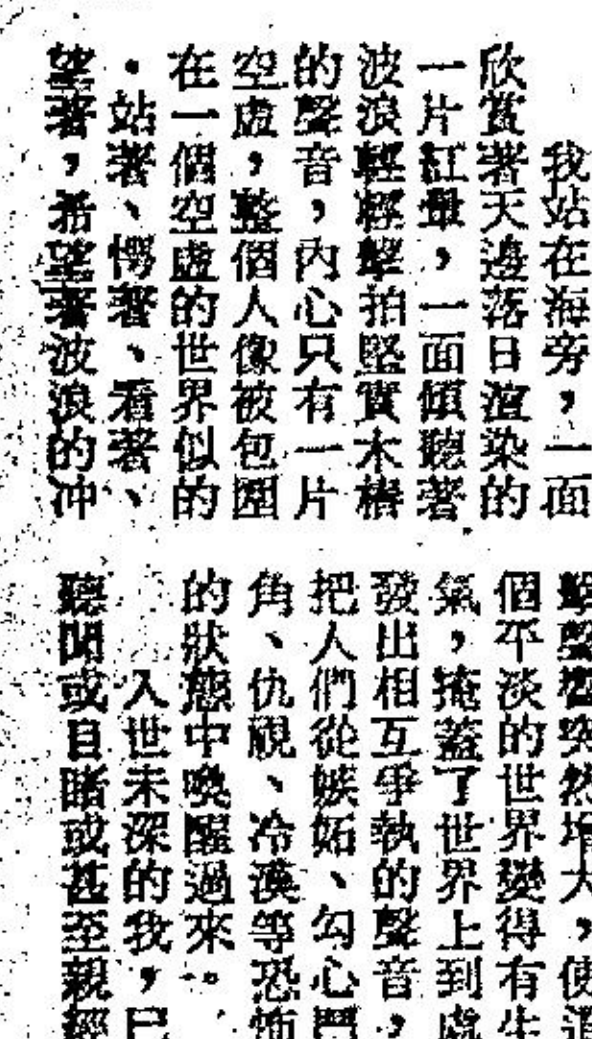 我站在海旁，一面
欣賞著天邊落日渲染的
一片紅暈，一面傾聽著
波浪輕輕擊拍堅實木樁
的聲音，內心只有一片
空虛，整個人像被包圍
在一個空虛的世界似的
。站著、愕著、看著、
望著，希望著波浪的冲
擊聲響突然增大，使這
個平淡的世界變得有生
氣，掩蓋了世界上到處
發出相互爭執的聲音，
把人們從嫉妬、勾心鬥
角、仇視、冷漠等恐怖
的狀態中喚醒過來。
入世未深的我，已
聽聞或目睹或甚至親經